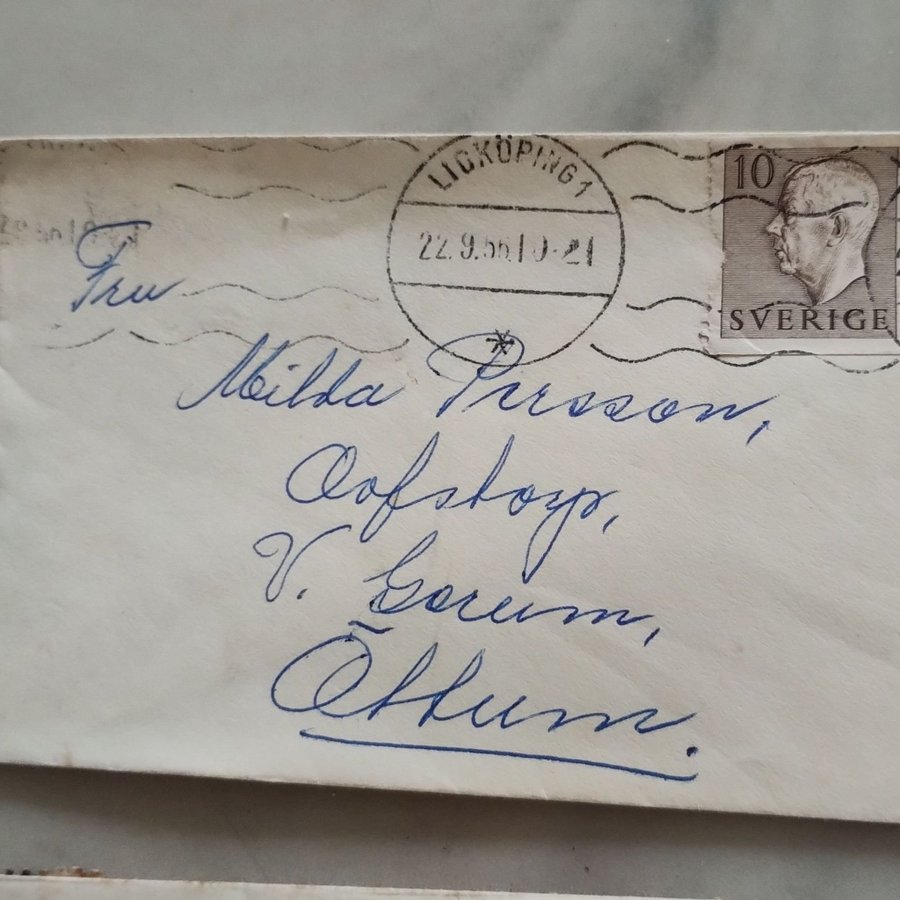 LIDKÖPING 1
10
22.9.56.10-21
SVERIGE
Fru
Milda Persson,
Oofstorp,
V. Gorum,
Öttum.